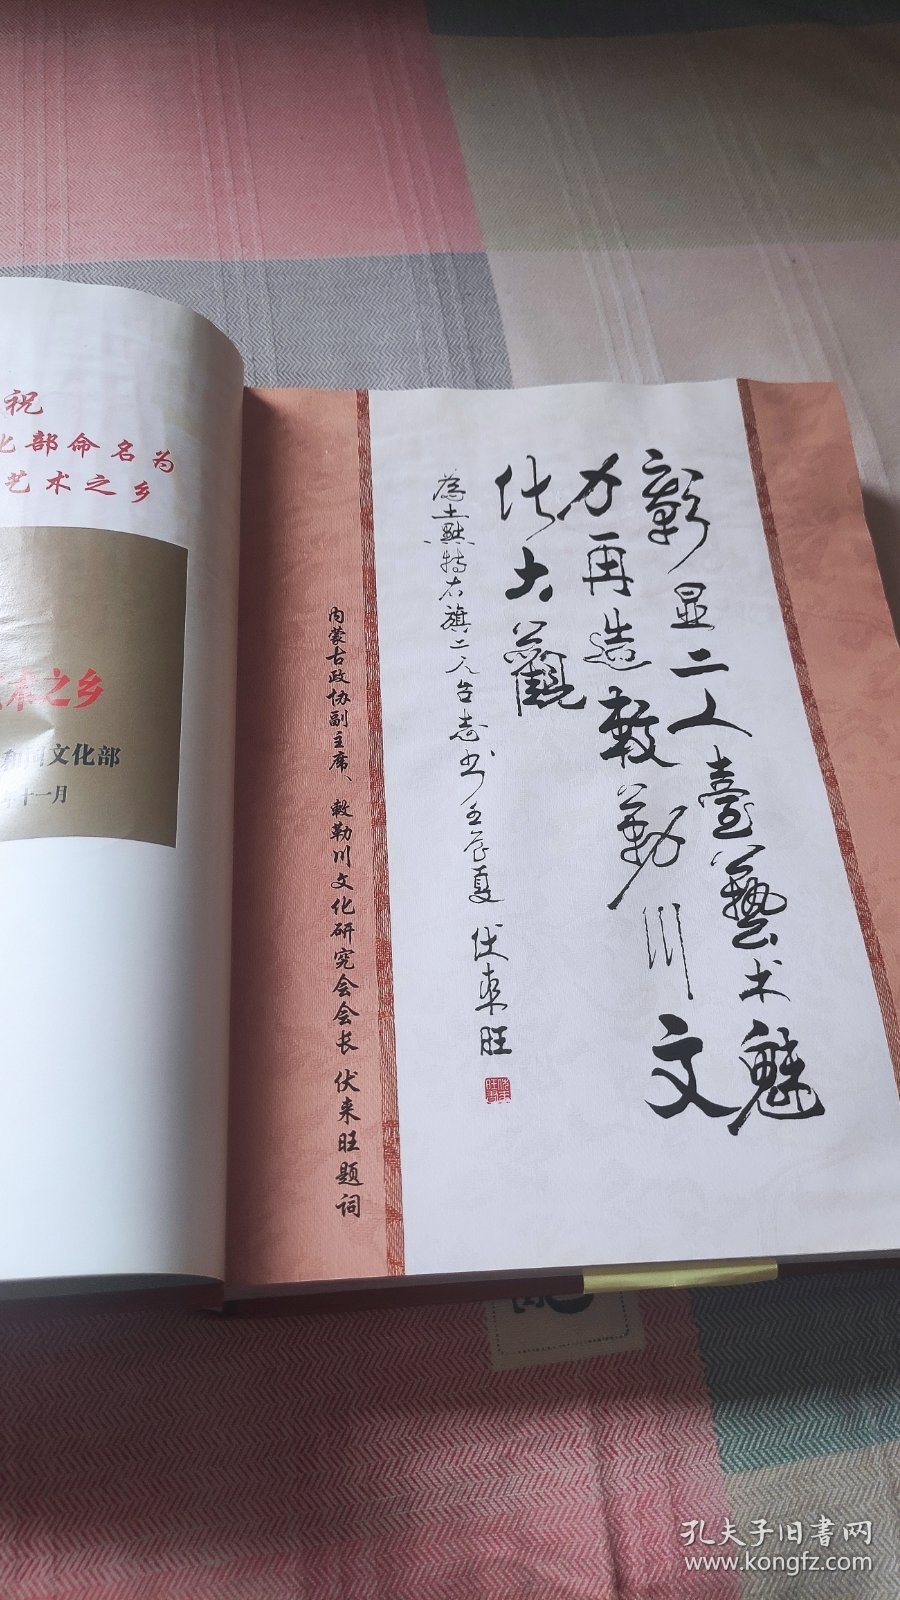 祝
化部命名为
艺术之乡
术之乡
和国文化部
十一月
彰显二人臺藝术魅
力再造敕勒川文
化大觀
為土默特右旗二人台志书 壬辰夏 伏来旺
内蒙古政协副主席、敕勒川文化研究会会长 伏来旺题词
孔夫子旧書网
www.kongfz.com